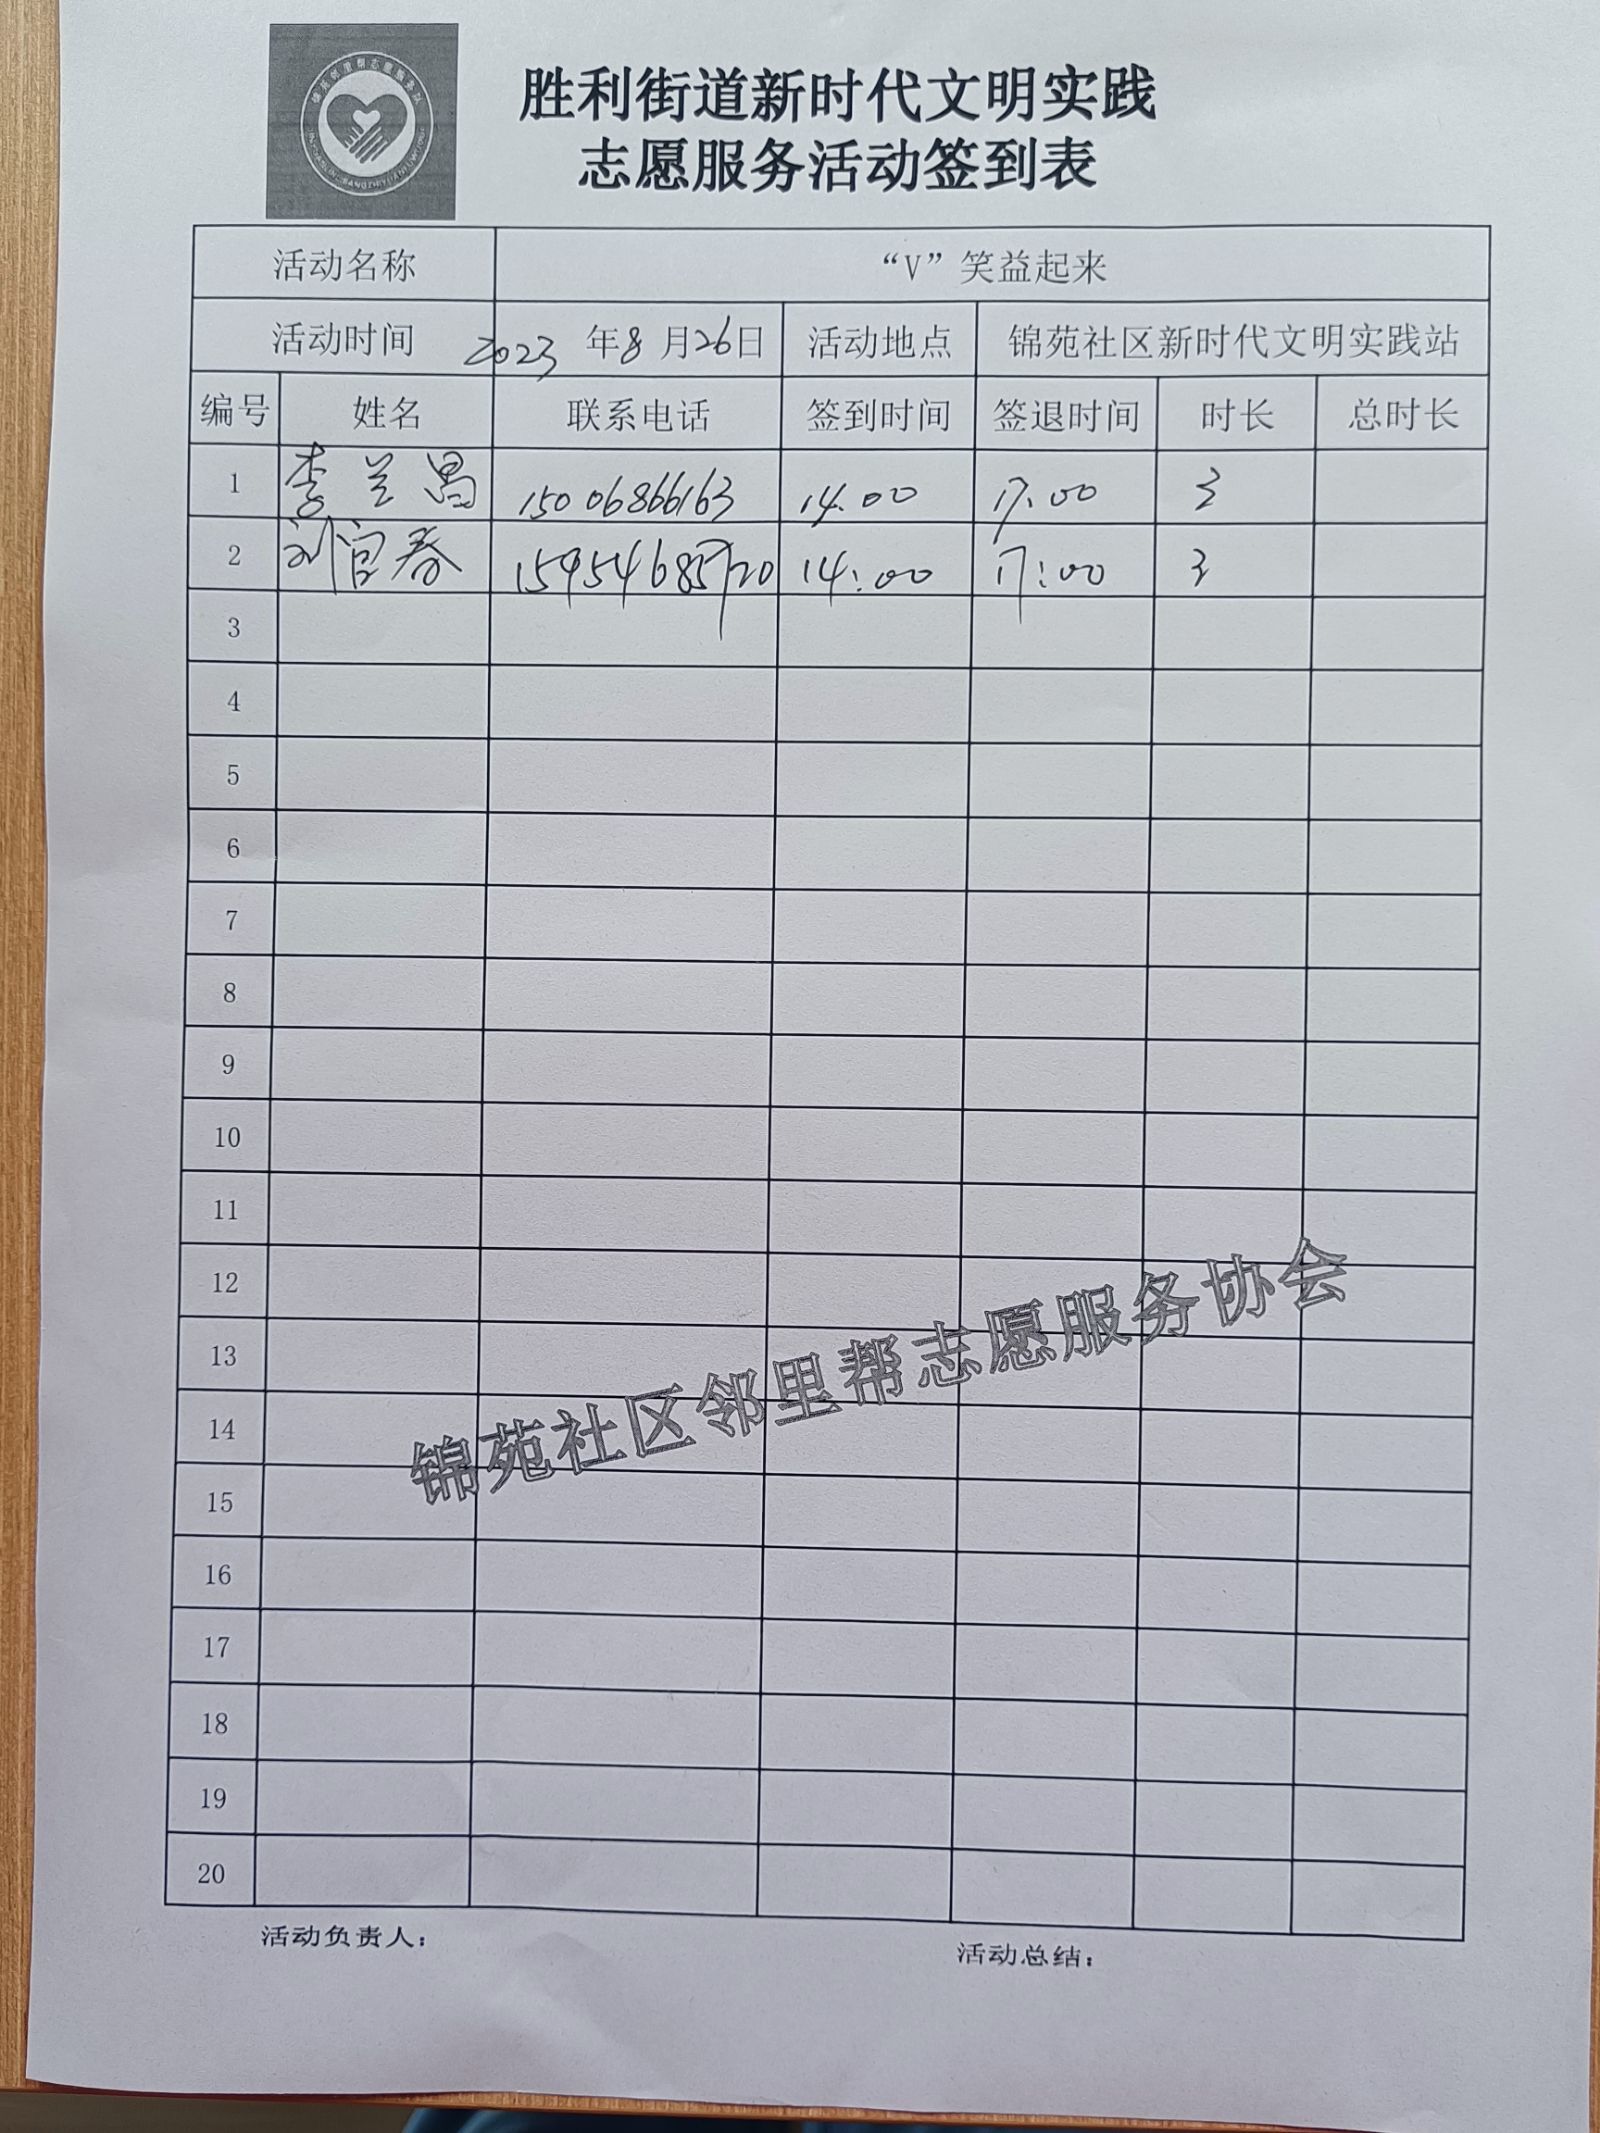 锦苑邻里帮志愿服务队
胜利街道新时代文明实践
志愿服务活动签到表
活动名称 “V”笑益起来
活动时间 2023 年8月26日 活动地点 锦苑社区新时代文明实践站
编号 姓名 联系电话 签到时间 签退时间 时长 总时长
1 李兰昌 15006866163 14.00 17.00 3
2 刘官春 15954685720 14:00 17:00 3
3
4
5
6
7
8
9
10
11
12
13
14
15
16
17
18
19
20
锦苑社区邻里帮志愿服务协会
活动负责人：
活动总结：